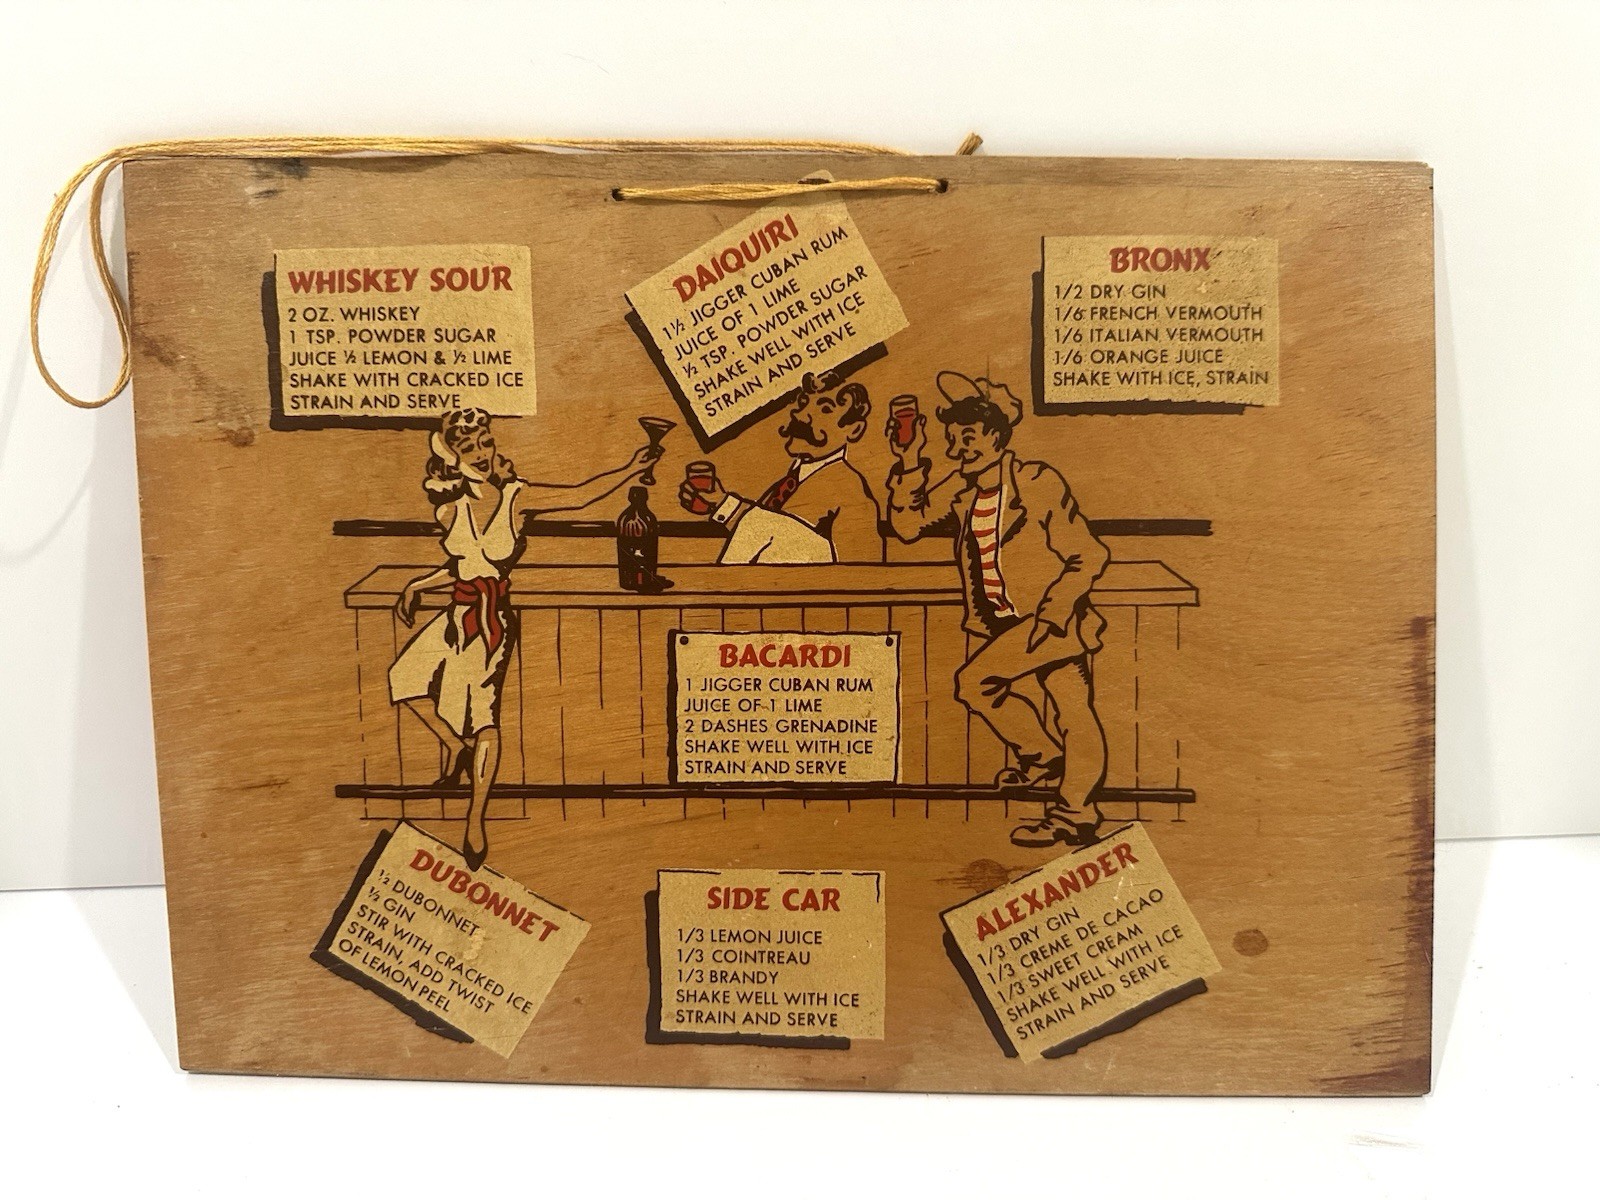 WHISKEY SOUR
2 OZ. WHISKEY
1 TSP. POWDER SUGAR
JUICE ½ LEMON & ½ LIME
SHAKE WITH CRACKED ICE
STRAIN AND SERVE
DAIQUIRI
1½ JIGGER CUBAN RUM
JUICE OF 1 LIME
½ TSP. POWDER SUGAR
SHAKE WELL WITH ICE
STRAIN AND SERVE
BRONX
1/2 DRY GIN
1/6 FRENCH VERMOUTH
1/6 ITALIAN VERMOUTH
1/6 ORANGE JUICE
SHAKE WITH ICE, STRAIN
BACARDI
1 JIGGER CUBAN RUM
JUICE OF 1 LIME
2 DASHES GRENADINE
SHAKE WELL WITH ICE
STRAIN AND SERVE
DUBONNET
½ DUBONNET
½ GIN
STIR WITH CRACKED ICE
STRAIN, ADD TWIST
OF LEMON PEEL
SIDE CAR
1/3 LEMON JUICE
1/3 COINTREAU
1/3 BRANDY
SHAKE WELL WITH ICE
STRAIN AND SERVE
ALEXANDER
1/3 DRY GIN
1/3 CREME DE CACAO
1/3 SWEET CREAM
SHAKE WELL WITH ICE
STRAIN AND SERVE